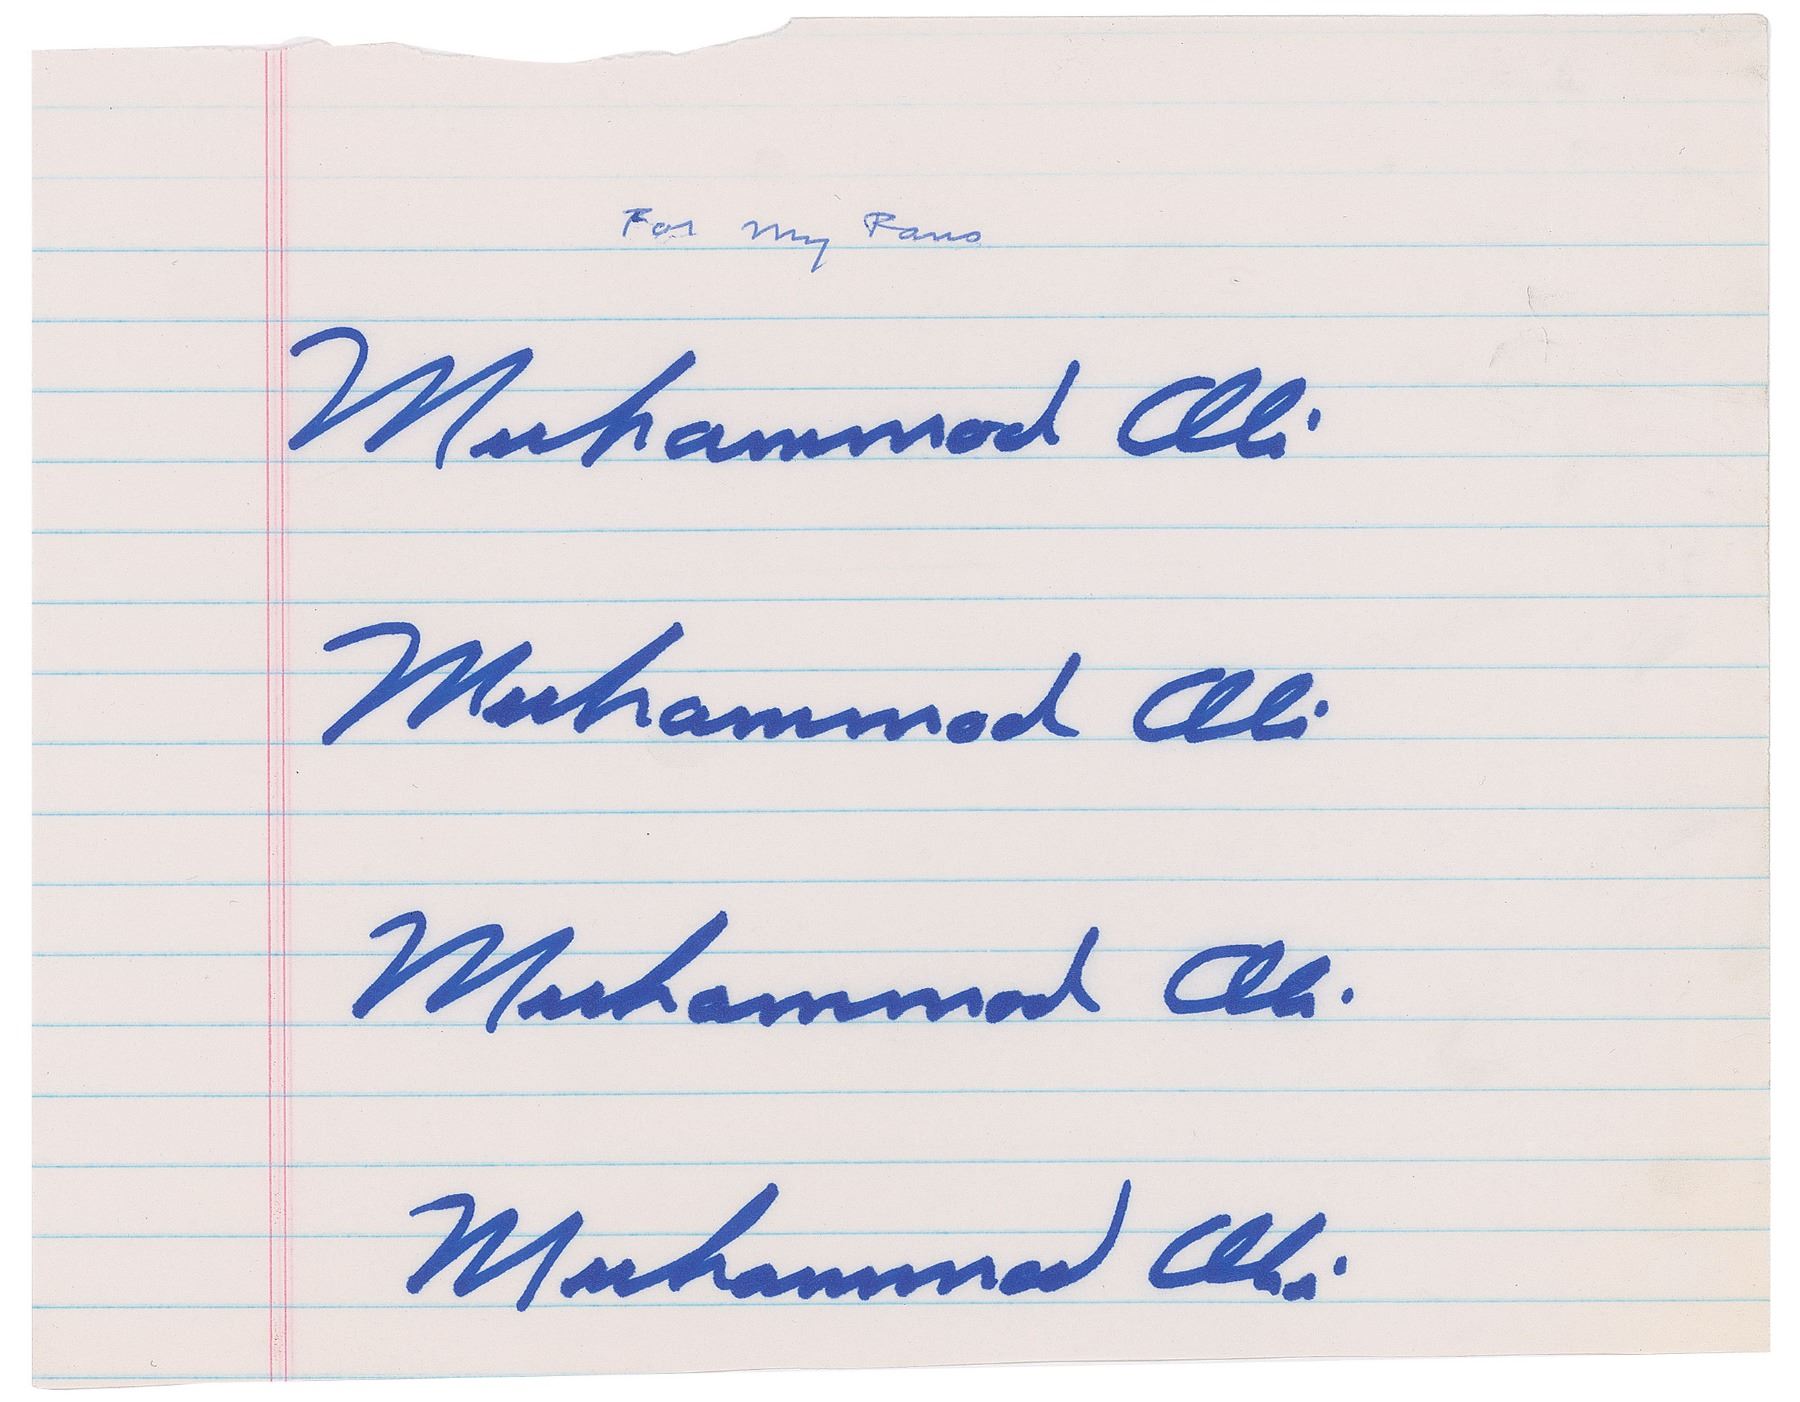 For My Fans
Muhammad Ali
Muhammad Ali
Muhammad Ali
Muhammad Ali